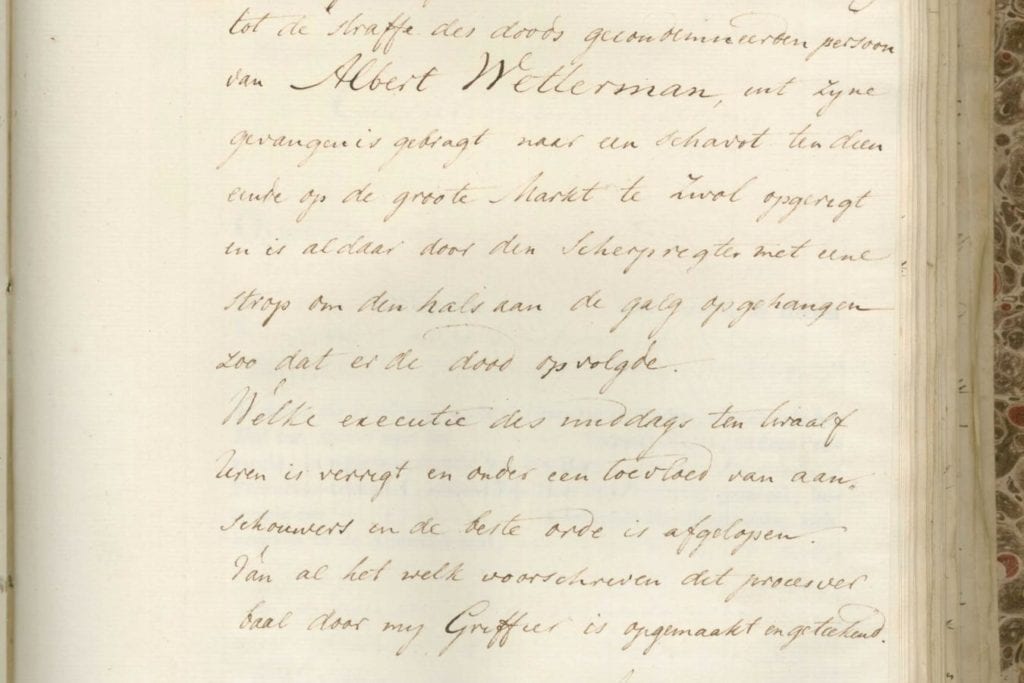 tot de straffe des doods gecondemneerden persoon
van Albert Wetterman, uit zyne
gevangenis gebragt naar een schavot ten dien
einde op de groote Markt te Zwol opgeregt
en is aldaar door den Scherpregter met eene
strop om den hals aan de galg opgehangen
zoo dat er de dood op volgde.
Welke executie des middags ten twaalf
Uren is verrigt en onder een toevloed van aan-
schouwers en de beste orde is afgelopen.
Van al het welk voorschreven dit proces ver
baal door my Griffier is opgemaakt en geteekend.